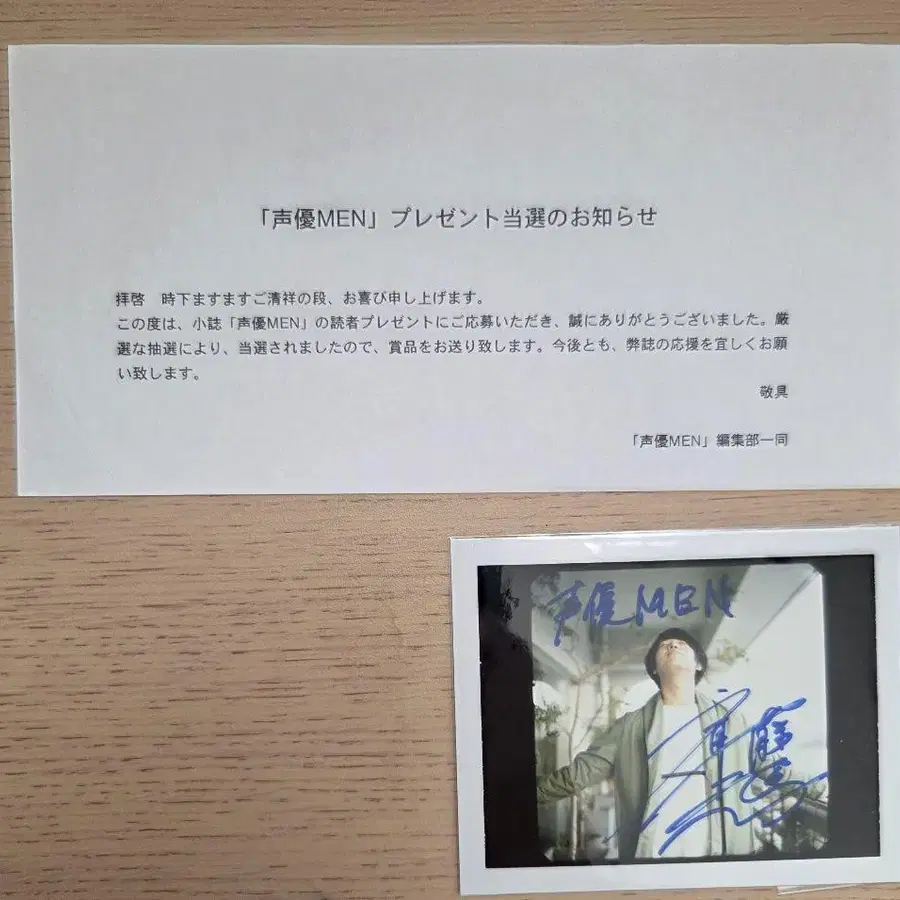 「声優MEN」プレゼント当選のお知らせ
拝啓　時下ますますご清祥の段、お喜び申し上げます。
この度は、小誌「声優MEN」の読者プレゼントにご応募いただき、誠にありがとうございました。厳
選な抽選により、当選されましたので、賞品をお送り致します。今後とも、弊誌の応援を宜しくお願
い致します。
敬具
「声優MEN」編集部一同
声優MEN